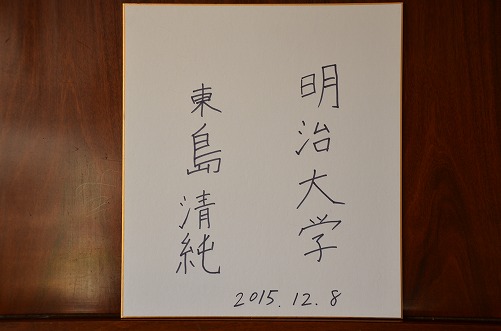 明治大学
東島清純
2015.12.8